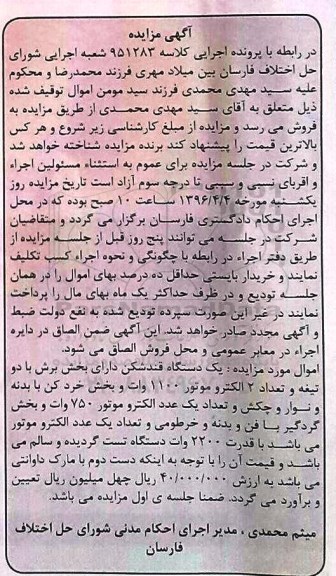 آگهی مزایده
در رابطه با پرونده اجرایی کلاسه ۹۵۱۲۸۳ شعبه اجرایی شورای
حل اختلاف فارسان بین میلاد مهری فرزند محمدرضا و محکوم
علیه سید مهدی محمدی فرزند سید مومن اموال توقیف شده
ذیل متعلق به آقای سید مهدی محمدی از طریق مزایده به
فروش می رسد و مزایده از مبلغ کارشناسی زیر شروع و هر کس
بالاترین قیمت را پیشنهاد کند برنده مزایده شناخته خواهد شد
و شرکت در جلسه مزایده برای عموم به استثناء مسئولین اجراء
و اقربای نسبی و سببی تا درجه سوم آزاد است تاریخ مزایده روز
یکشنبه مورخه ۱۳۹۶/۴/۴ ساعت ۱۰ صبح بوده که در محل
اجرای احکام دادگستری فارسان برگزار می گردد و متقاضیان
شرکت در جلسه می توانند پنج روز قبل از جلسه مزایده از
طریق دفتر اجراء در رابطه با چگونگی و نحوه اجراء کسب تکلیف
نمایند و خریدار بایستی حداقل ده درصد بهای اموال را در همان
جلسه تودیع و در ظرف حداکثر یک ماه بهای مال را پرداخت
نمایند در غیر این صورت سپرده تودیع شده به نفع دولت ضبط
و آگهی مجدد صادر خواهد شد. این آگهی ضمن الصاق در دایره
اجراء در معابر عمومی و محل فروش الصاق می شود.
اموال مورد مزایده : یک دستگاه قندشکن دارای بخش برش با دو
تیغه و تعداد ۲ الکترو موتور ۱۱۰۰ وات و بخش خرد کن با بدنه
و نوار و چکش و تعداد یک عدد الکترو موتور ۷۵۰ وات و بخش
گردگیر با فن و بدنه و خرطومی و تعداد یک عدد الکترو موتور
می باشد با قدرت ۲۲۰۰ وات دستگاه تست گردیده و سالم می
باشد و قیمت آن را با توجه به اینکه دست دوم با مارک داوانتی
می باشد به ارزش ۴۰/۰۰۰/۰۰۰ ریال چهل میلیون ریال تعیین
و برآورد می گردد. ضمنا جلسه ی اول مزایده می باشد.
میثم محمدی ، مدیر اجرای احکام مدنی شورای حل اختلاف
فارسان